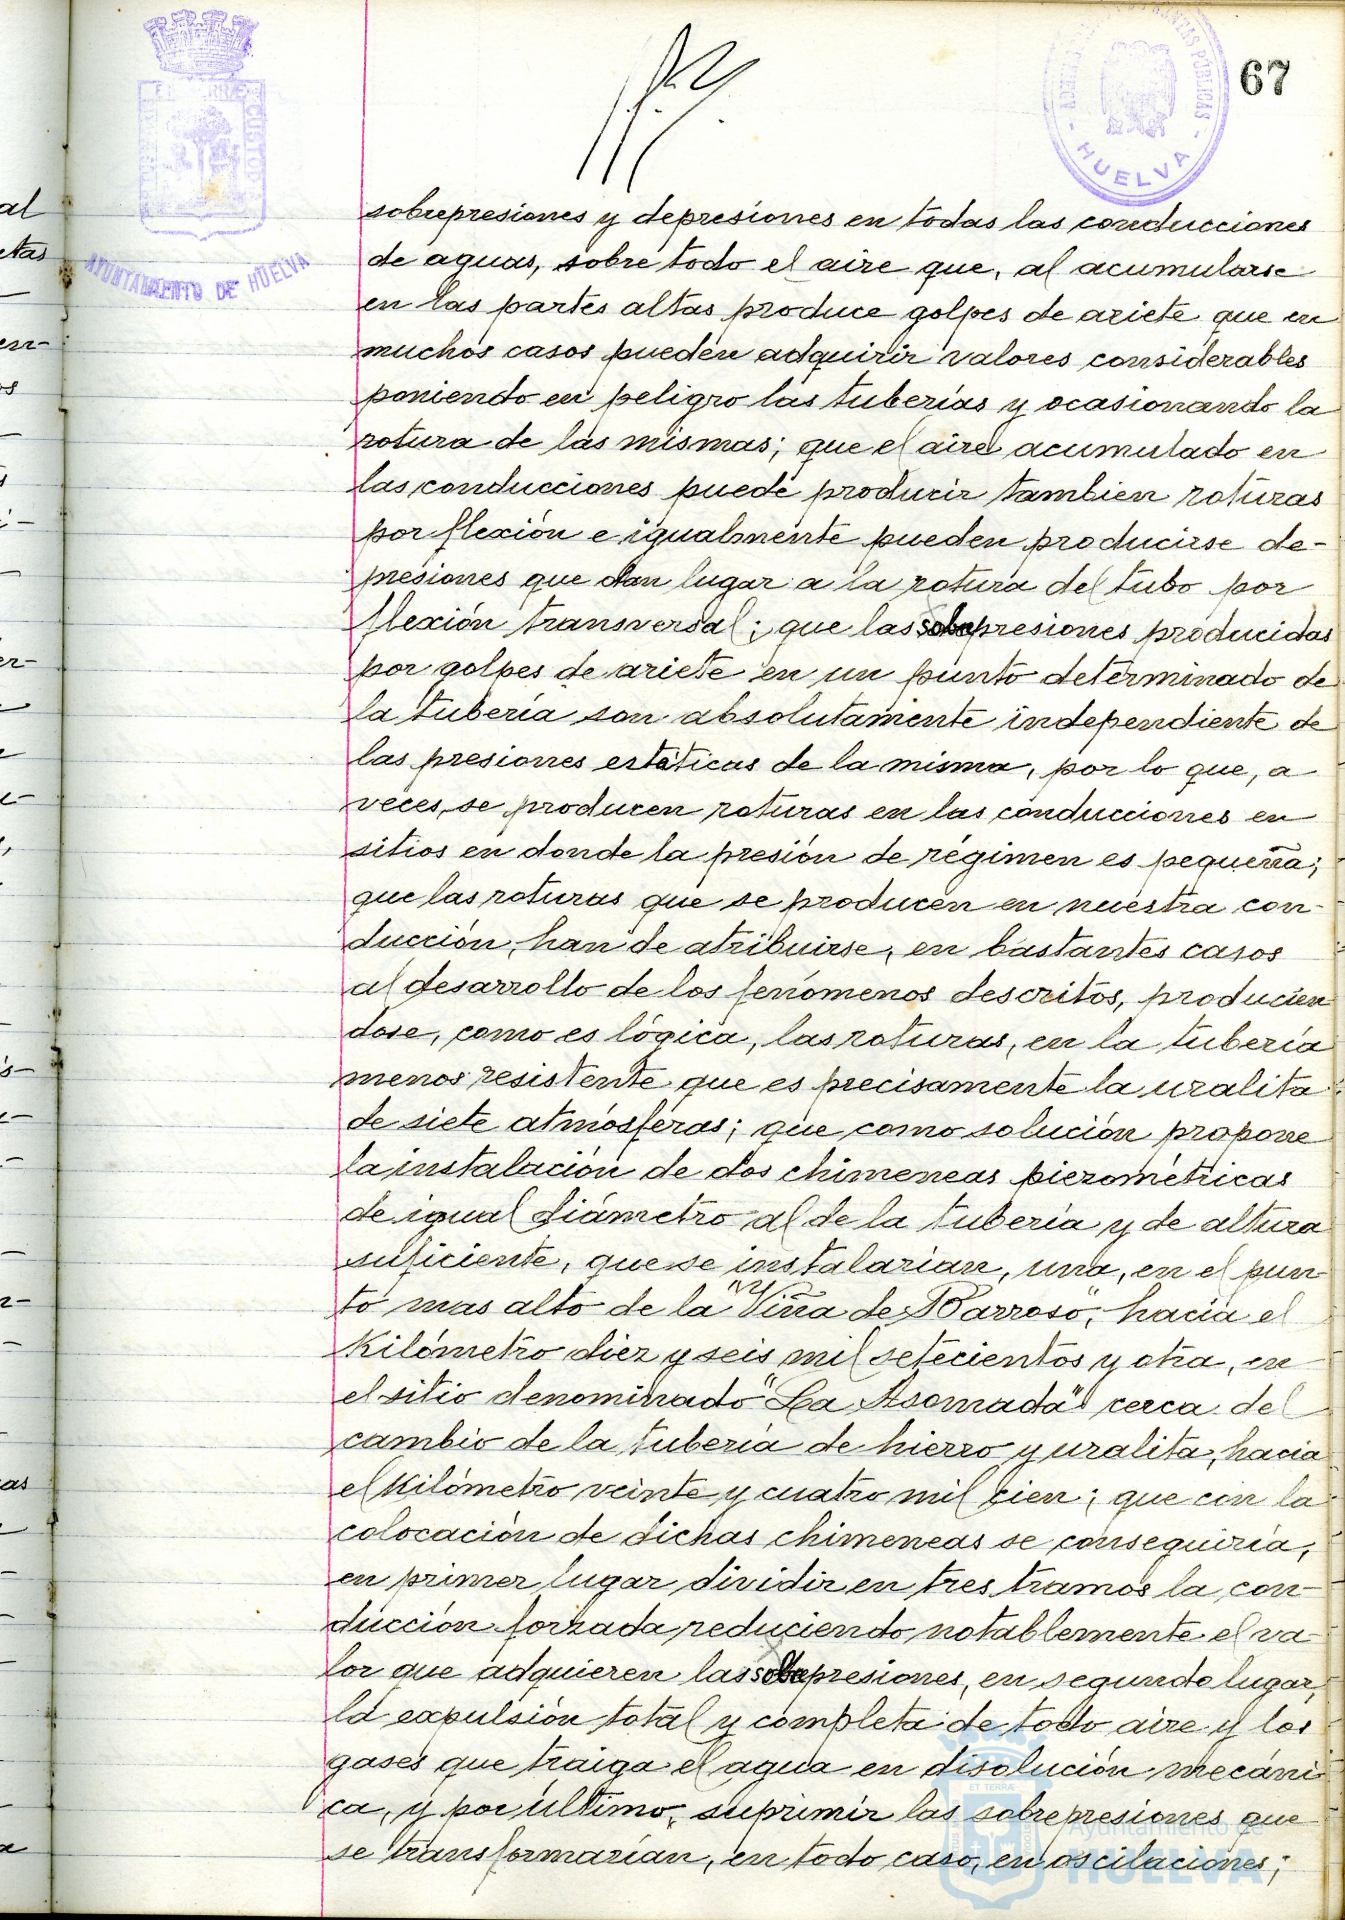 67
HUELVA
AYUNTAMIENTO DE HUELVA
sobrepresiones y depresiones en todas las conducciones
de aguas, sobre todo el aire que, al acumularse
en las partes altas produce golpes de ariete que en
muchos casos pueden adquirir valores considerables
poniendo en peligro las tuberías y ocasionando la
rotura de las mismas; que el aire acumulado en
las conducciones puede producir tambien roturas
por flexión e igualmente pueden producirse de-
presiones que dan lugar a la rotura del tubo por
flexión transversal; que las sobrepresiones producidas
por golpes de ariete en un punto determinado de
la tubería son absolutamente independiente de
las presiones estáticas de la misma, por lo que, a
veces, se producen roturas en las conducciones en
sitios en donde la presión de régimen es pequeña;
que las roturas que se producen en nuestra con-
ducción, han de atribuirse, en bastantes casos
al desarrollo de los fenómenos descritos, producien
dose, como es lógica, las roturas, en la tubería
menos resistente que es precisamente la uralita
de siete atmósferas; que como solución propone
la instalación de dos chimeneas piezométricas
de igual diámetro al de la tubería y de altura
suficiente, que se instalarían, una, en el pun
to mas alto de la "Viña de Barroso", hacia el
Kilómetro diez y seis mil setecientos y otra, en
el sitio denominado "La Asomada" cerca del
cambio de la tubería de hierro y uralita, hacia
el Kilómetro veinte y cuatro mil cien; que con la
colocación de dichas chimeneas se conseguiría,
en primer lugar dividir en tres tramos la con-
ducción forzada reduciendo notablemente el va-
lor que adquieren las sobrepresiones, en segundo lugar,
la expulsión total y completa de todo aire y los
gases que traiga el agua en disolución mecáni-
ca, y por último, suprimir las sobrepresiones que
se transformarían, en todo caso, en oscilaciones;
Ayuntamiento de
HUELVA